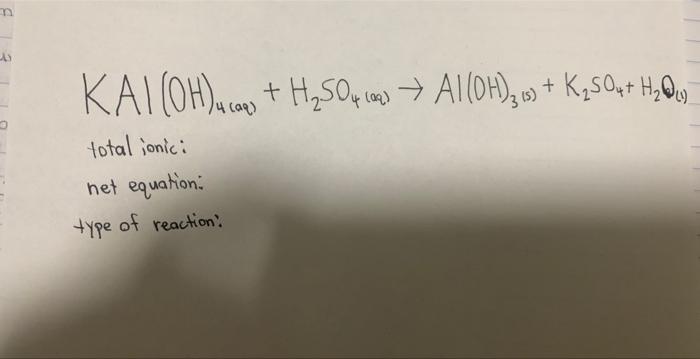 KAl(OH)₄(aq) + H₂SO₄(aq) → Al(OH)₃(s) + K₂SO₄ + H₂O(l)
total ionic:
net equation:
type of reaction: